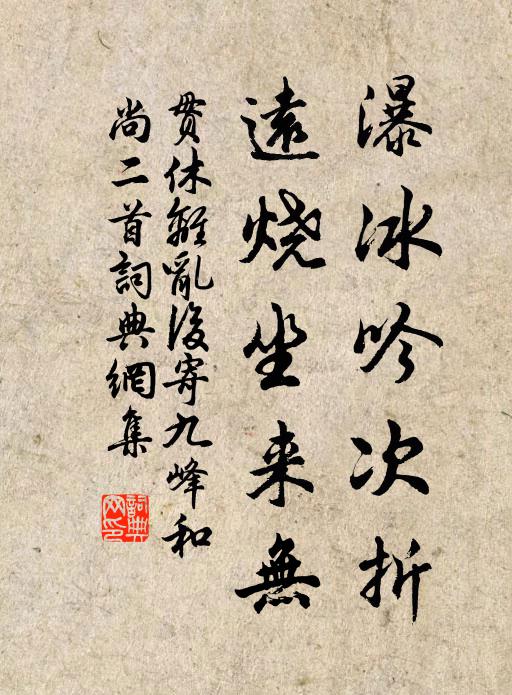 瀑冰吟次折
遠燒坐来無
贯休離亂後寄九峰和
尚二首詞典網集
詞典网印